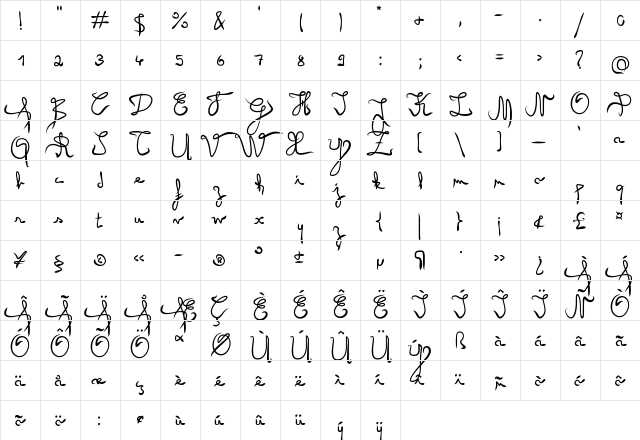 ! " # $ % & ' ( ) * + , - . / 0
1 2 3 4 5 6 7 8 9 : ; < = > ? @
A B C D E F G H I J K L M N O P
Q R S T U V W X Y Z [ \ ] _ ` a
b c d e f g h i j k l m n o p q
r s t u v w x y z { | } ¡ ¢ £ ¤
¥ § © « ¯ ® ° ± µ ¶ · » ¿ À Á
Â Ã Ä Å Æ Ç È É Ê Ë Ì Í Î Ï Ñ Ò
Ó Ô Õ Ö Ø Ù Ú Û Ü Ý ß à á â ã
ä å æ ç è é ê ë ì í î ï ñ ò ó ô
õ ö ù ú û ü ý ÿ